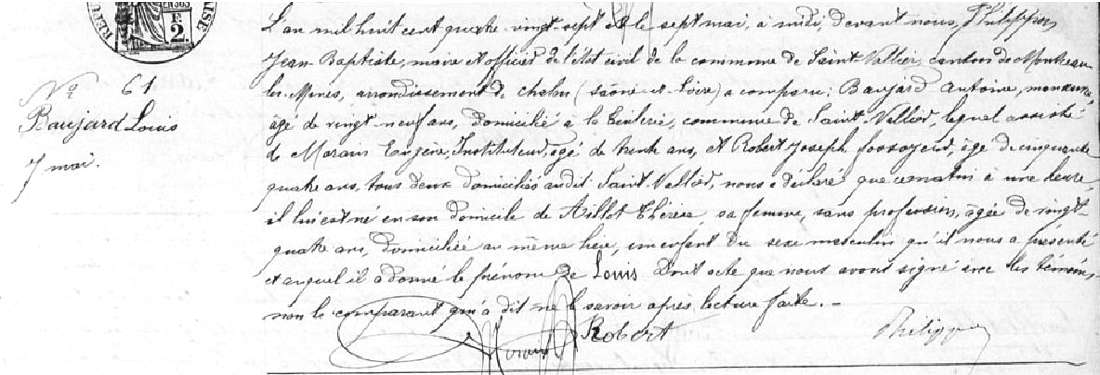 2.
N° 61
Baujard Louis
7 mai.
L'an mil huit cent quatre-vingt-sept et le sept mai, à midi, devant nous, Philippon
Jean-Baptiste, maire et officier de l'état civil de la commune de Saint-Vallier, canton de Montceau-
les-Mines, arrondissement de Chalon (Saône-et-Loire) a comparu: Baujard Antoine, manœuvre,
âgé de vingt-neuf ans, domicilié à la commune de Saint-Vallier, lequel assisté
de Morain Eugène, Instituteur, âgé de trente ans, et Robert Joseph fossoyeur, âgé de cinquante
quatre ans, tous deux domiciliés audit Saint-Vallier, nous a déclaré que ce matin à une heure,
il lui est né en son domicile de Aillot Thérèse, sa femme, sans profession, âgée de vingt-
quatre ans, domiciliée au même lieu, un enfant du sexe masculin qu'il nous a présenté
et auquel il a donné le prénom de Louis Dont acte que nous avons signé avec les témoins,
non le comparant qui a dit ne le savoir après lecture faite. -
Morain Robert